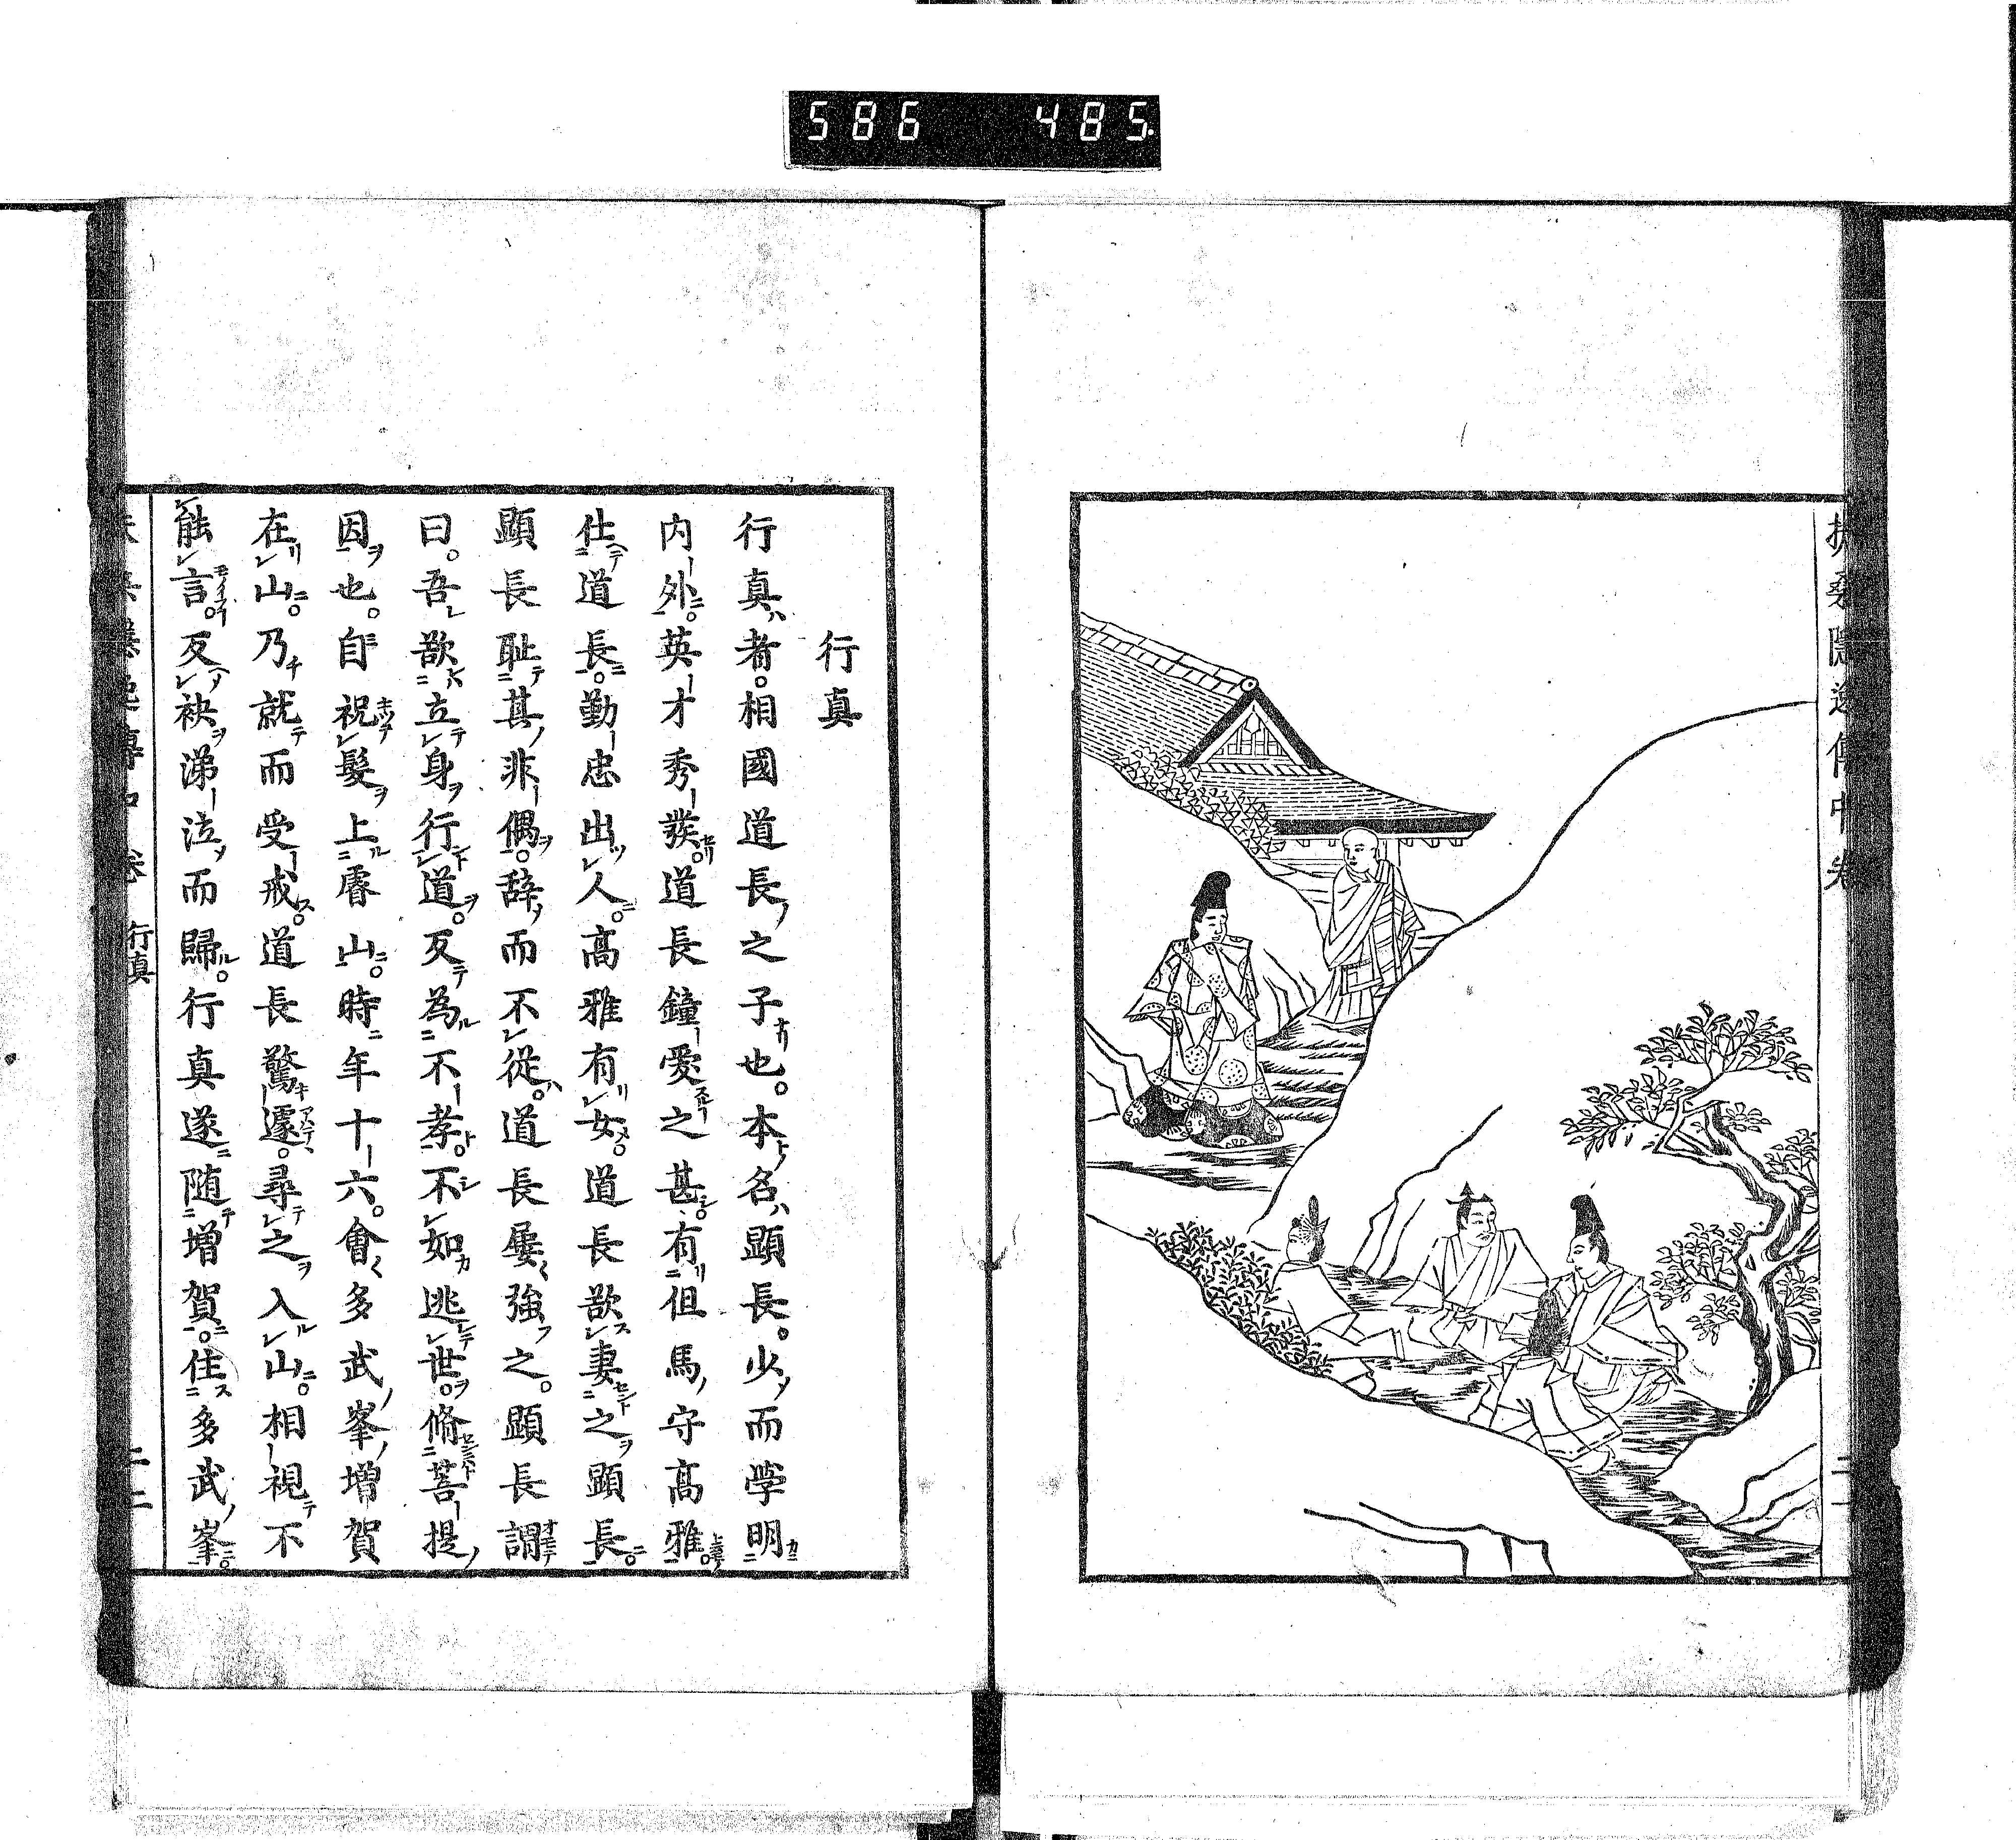 586 485.
扶桑隱逸傳中卷
行真
行真者。相國道長之子也。本名顯長。少而学明
内外。英才秀發。道長鐘愛之甚。有但馬守高雅。
仕道長。勤忠出人。高雅有女。道長欲妻之顯長。
顯長耻其非偶。辞而不從。道長屢強之。顯長謂
曰。吾欲立身行道。反為不孝。不如逃世。脩菩提
因也。自祝髮上睿山。時年十六。會多武峯增賀
在山。乃就而受戒。道長驚遽。尋之入山。相視不
能言。反袂涕泣而歸。行真遂随增賀。住多武峯。
行真